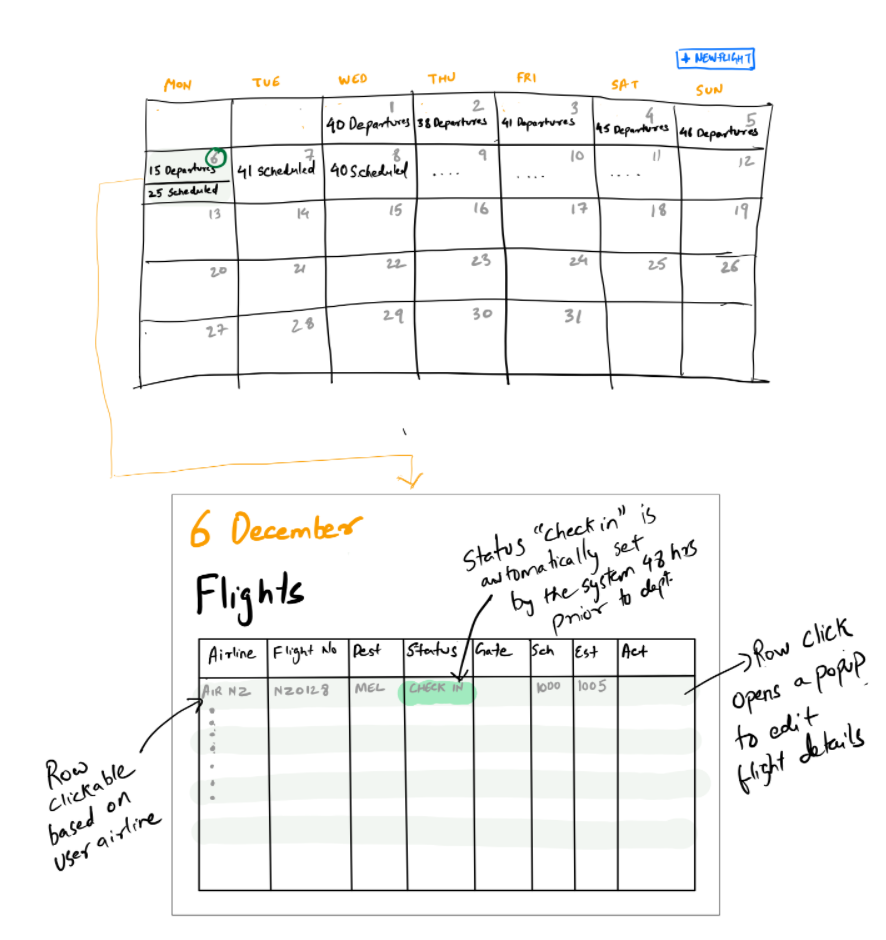 + NEW FLIGHT
MON TUE WED THU FRI SAT SUN
1 2 3 4 5
40 Departures 38 Departures 41 Departures 45 Departures 46 Departures
6 7 8 9 10 11 12
15 Departures 41 scheduled 40 Scheduled .... .... ....
25 Scheduled
13 14 15 16 17 18 19
20 21 22 23 24 25 26
27 28 29 30 31
6 December
Flights
Status "check in" is
automatically set
by the system 48 hrs
prior to dept.
Airline Flight No Dest Status Gate Sch Est Act
AIR NZ NZ0128 MEL CHECK IN 1000 1005
Row click
opens a popup
to edit
flight details
Row
clickable
based on
user airline